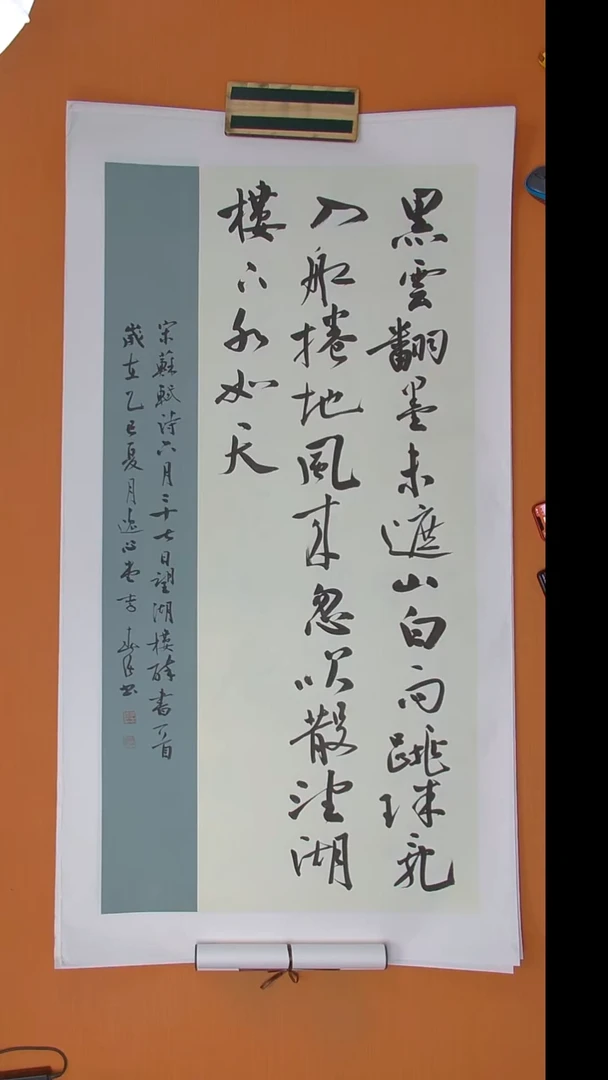 黑雲翻墨未遮山白雨跳珠亂
入船捲地風來忽吹散望湖
樓下水如天
宋蘇軾詩六月二十七日望湖樓醉書一首
歲在乙巳夏月心堂書